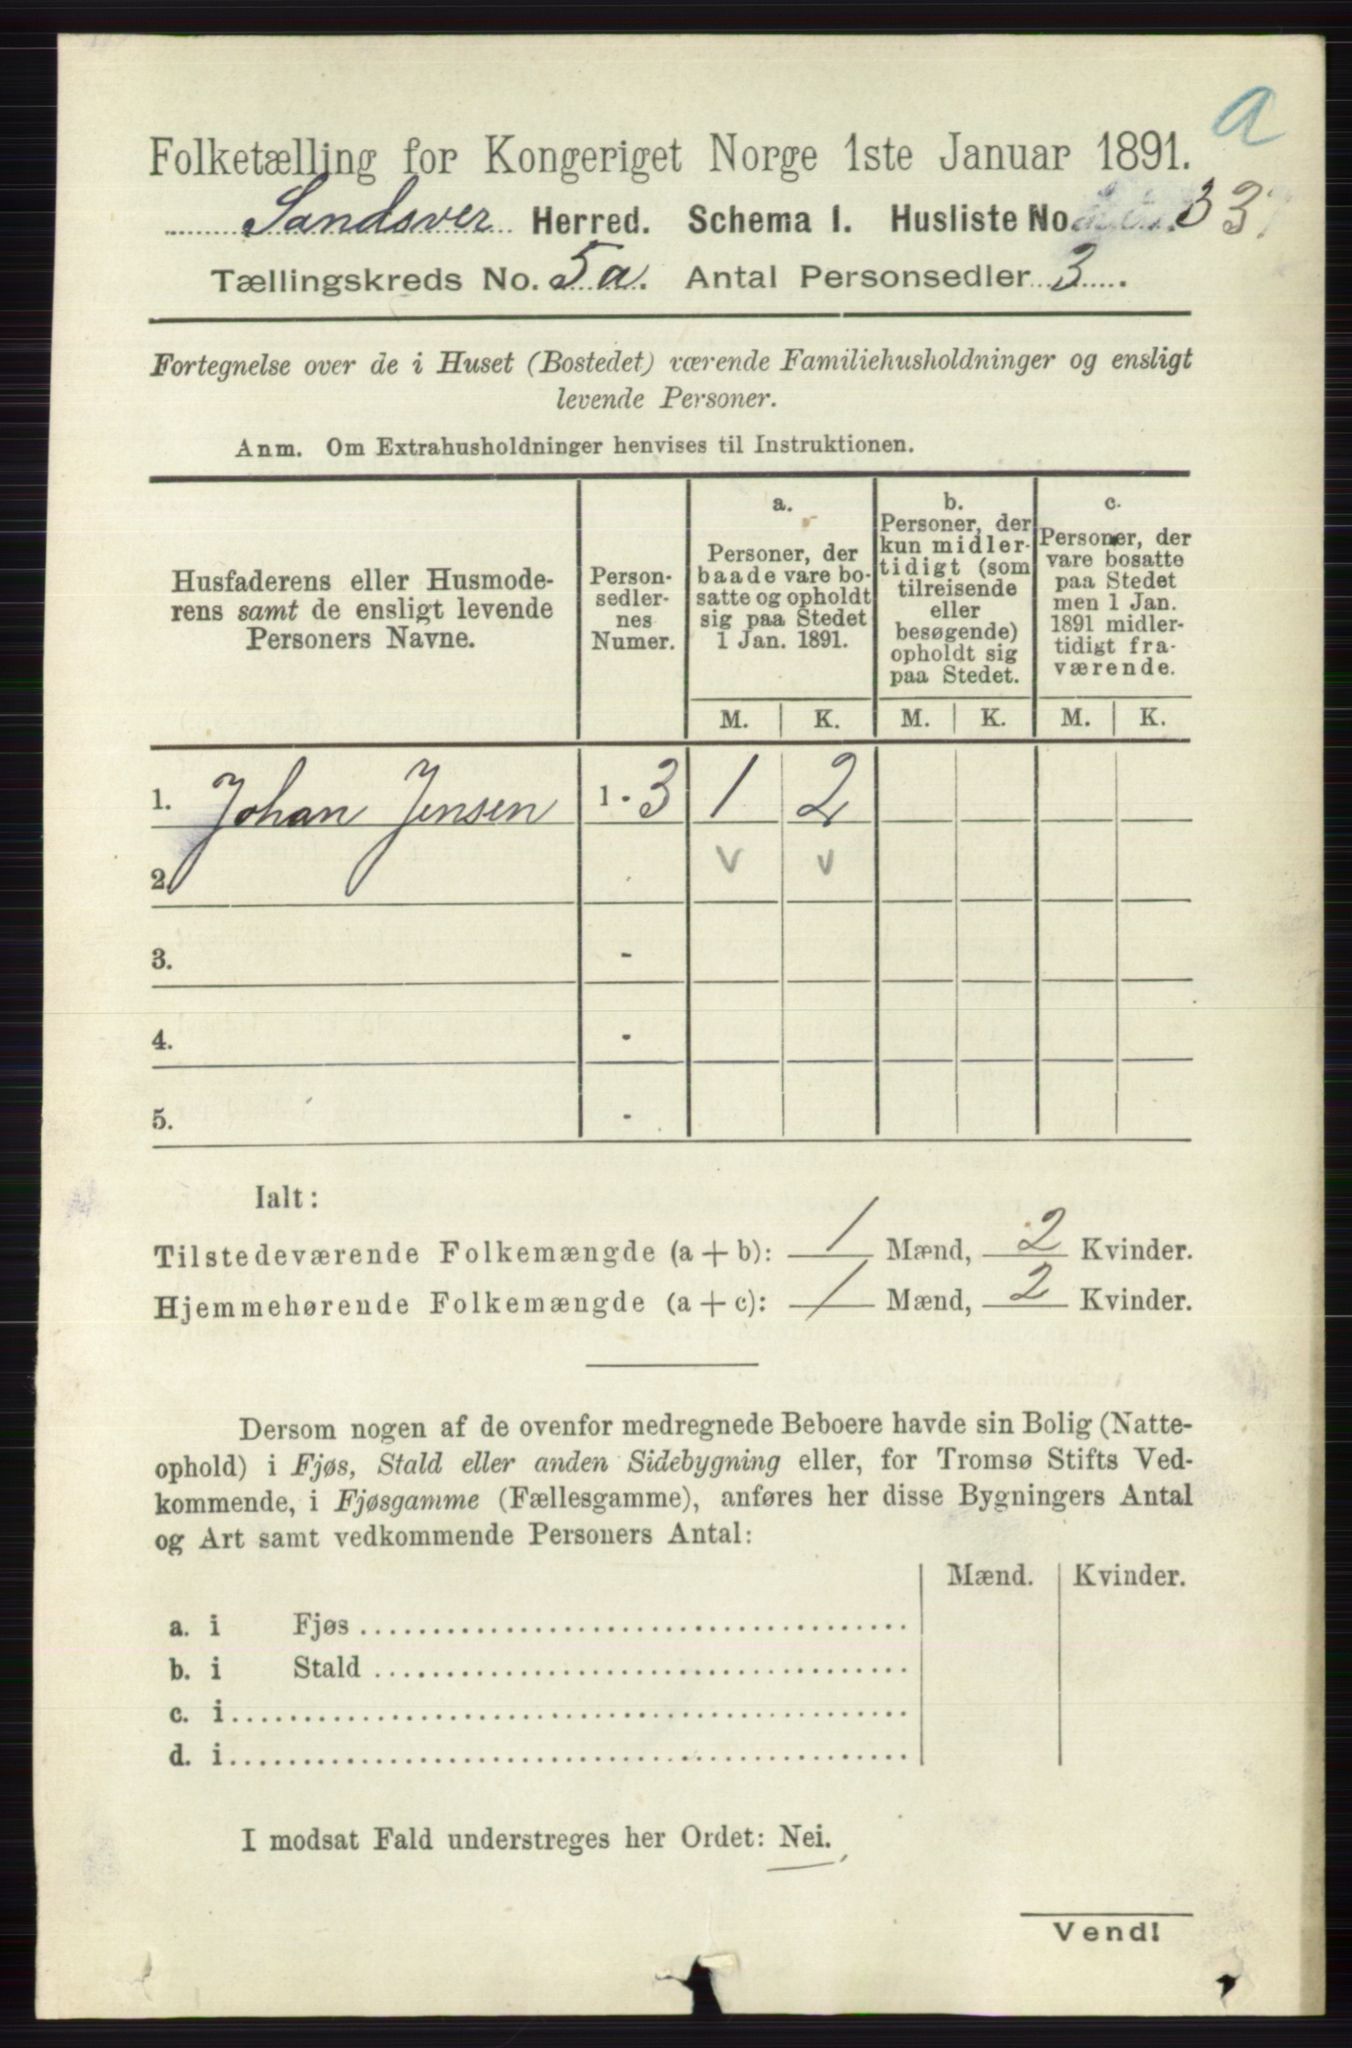 a
Folketælling for Kongeriget Norge 1ste Januar 1891.
Sandsver Herred. Schema 1. Husliste No. 33
Tællingskreds No. 5a. Antal Personsedler 3.
Fortegnelse over de i Huset (Bostedet) værende Familiehusholdninger og ensligt
levende Personer.
Anm. Om Extrahusholdninger henvises til Instruktionen.
Husfaderens eller Husmode-
rens samt de ensligt levende
Personers Navne.
Person-
sedler-
nes
Numer.
a.
Personer, der
baade vare bo-
satte og opholdt
sig paa Stedet
1 Jan. 1891.
b.
Personer, der
kun midler-
tidigt (som
tilreisende
eller
besøgende)
opholdt sig
paa Stedet.
c.
Personer, der
vare bosatte
paa Stedet
men 1 Jan.
1891 midler-
tidigt fra-
værende.
M. K. M. K. M. K.
1. Johan Jensen 1 - 3 1 2
2. v v
3. -
4. -
5. -
Ialt:
Tilstedeværende Folkemængde (a + b): 1 Mænd, 2 Kvinder.
Hjemmehørende Folkemængde (a + c): 1 Mænd, 2 Kvinder.
Dersom nogen af de ovenfor medregnede Beboere havde sin Bolig (Natte-
ophold) i Fjøs, Stald eller anden Sidebygning eller, for Tromsø Stifts Ved-
kommende, i Fjøsgamme (Fællesgamme), anføres her disse Bygningers Antal
og Art samt vedkommende Personers Antal:
Mænd. Kvinder.
a. i Fjøs
b. i Stald
c. i
d. i
I modsat Fald understreges her Ordet: Nei.
Vend!